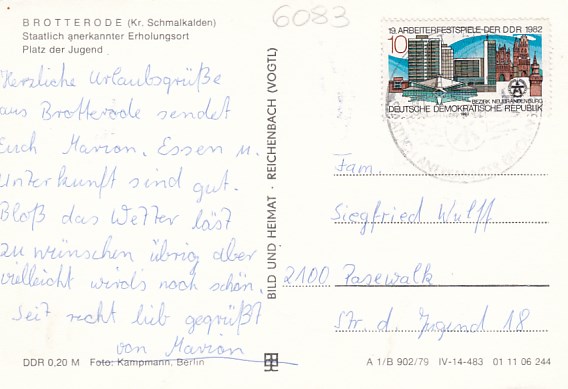 BROTTERODE (Kr. Schmalkalden)
Staatlich anerkannter Erholungsort
Platz der Jugend
6083
Herzliche Urlaubsgrüße
aus Brotterode sendet
Euch Marion. Essen u.
Unterkunft sind gut.
Bloß das Wetter läst
zu wünschen übrig aber
vielleicht wird's noch schön.
Seit recht lieb gegrüßt
von Marion
DDR 0,20 M Foto: Kampmann, Berlin
BILD UND HEIMAT · REICHENBACH (VOGTL)
19. ARBEITERFESTSPIELE DER DDR 1982
10
BEZIRK NEUBRANDENBURG
DEUTSCHE DEMOKRATISCHE REPUBLIK
Fam.
Siegfried Wulff
2100 Pasewalk
Str. d. Jugend 18
A 1/B 902/79 IV-14-483 01 11 06 244